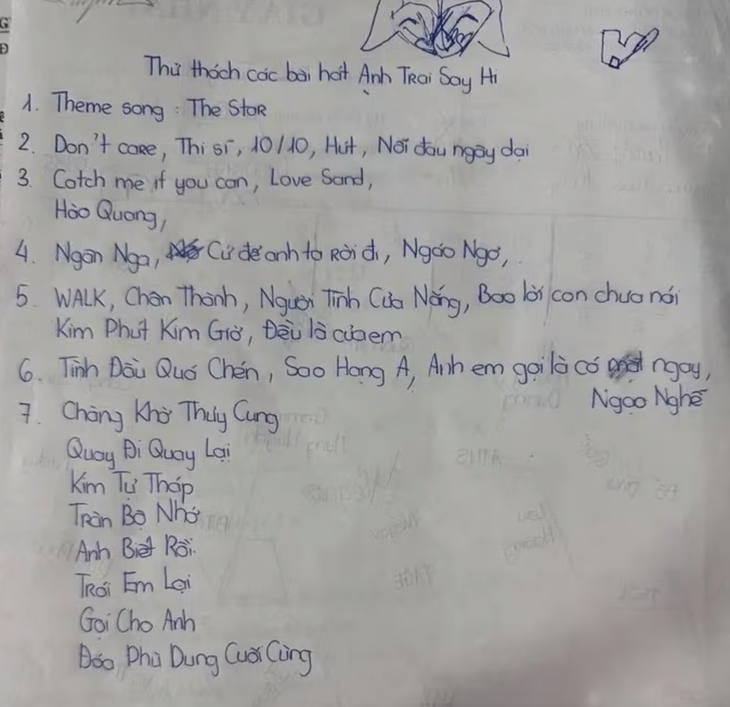 Thử thách các bài hát Anh Trai Say Hi
1. Theme song : The Star
2. Don't care, Thi sĩ, 10/10, Hút, Nỗi đau ngây dại
3. Catch me if you can, Love Sand,
Hào Quang,
4. Ngân Nga, Cứ để anh ta rời đi, Ngáo Ngơ,
5. WALK, Chân Thành, Người Tình Của Nắng, Bao lời con chưa nói
Kim Phút Kim Giờ, Đều là của em
6. Tình Đầu Quá Chén, Sao Hạng A, Anh em gọi là có ngay,
Ngạo Nghễ
7. Chàng Khờ Thủy Cung
Quay Đi Quay Lại
Kim Tự Tháp
Tràn Bộ Nhớ
Anh Biết Rồi
Trói Em Lại
Gọi Cho Anh
Đóa Phù Dung Cuối Cùng